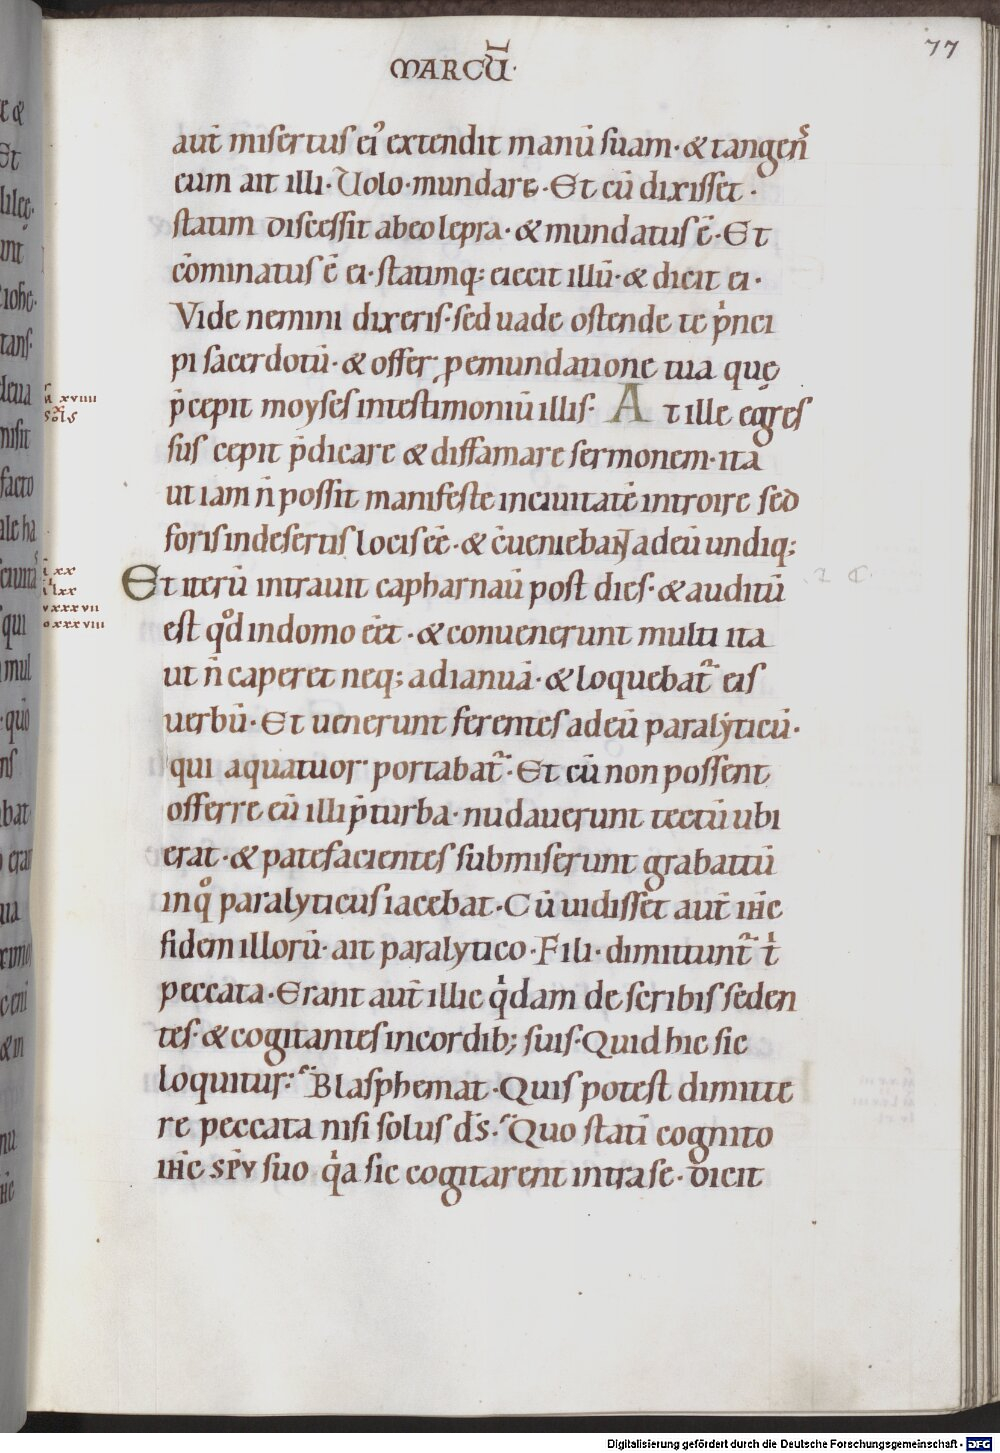 MARCŪ·
77
aut̄ misertus ei᾽ extendit manū suam· & tangen̄s
eum ait illi· Volo· mundare· Et cū dixisset·
statim discessit abeo lepra· & mundatus ē· Et
cōminatus ē ei· statimq; eiecit illū· & dicit ei·
Vide nemini dixeris· sed uade ostende te p̍nci
pi sacerdotū· & offer pemundatione tua quę
p̄cepit moyses intestimoniū illis· At ille egres
sus cepit p̄dicare & diffamare sermonem· ita
ut iam n̄ possit manifeste inciuitatē introire sed
foris indesertis locis eē· & c̄ueniebaNT adeū undiq;
Et iterū intrauit capharnaū post dies· & auditū
est qd̊ indomo eēt· & conuenerunt multi ita
ut n̄ caperet neq; adianuā· & loquebat᷒ eis
uerbū· Et uenerunt ferentes adeū paralyticū·
qui aquatuor portabat᷒· Et cū non possent
offerre eū illi p̄ turba· nudauerunt tectū ubi
erat· & patefacientes submiserunt grabattū
inq̊ paralyticus iacebat· Cū uidisset aut̄ ih̄c
fidem illorū· ait paralytico· Fili· dimittunt᷒ t̍
peccata· Erant aut̄ illic q̍dam de scribis seden
tes· & cogitantes incordib; suis· Quid hic sic
loquitur· Blasphemat· Quis potest dimitte
re peccata nisi solus d̄s· Quo statī cognito
ih̄c sp̄u suo q̍a sic cogitarent intra se· dicit
xviiii
xx
lxx
xxxvii
xxxviii
Digitalisierung gefördert durch die Deutsche Forschungsgemeinschaft - DFG